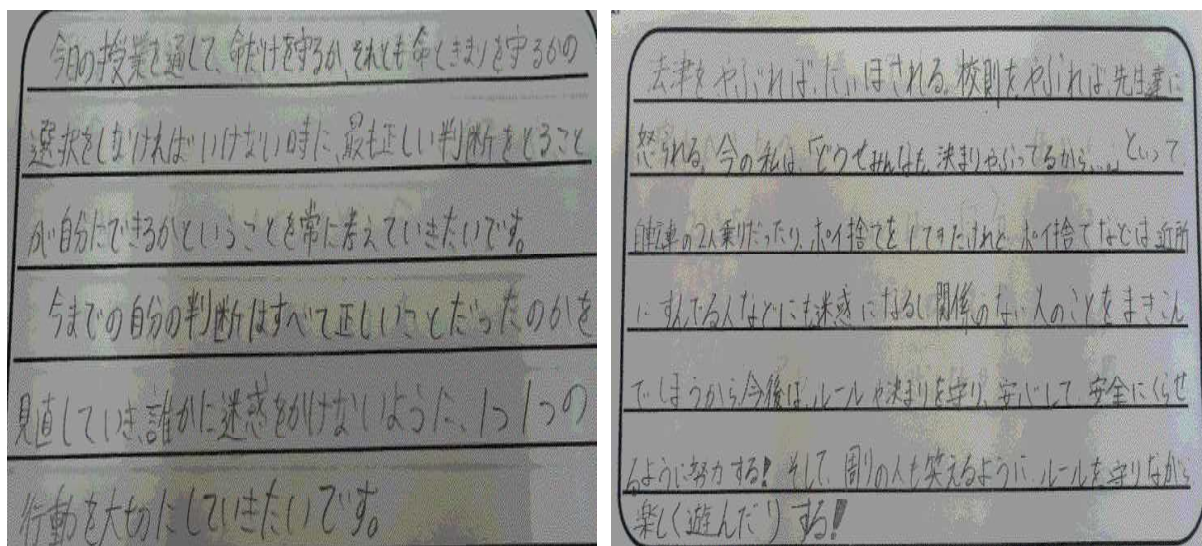 今日の授業を通して、命だけを守るか、それとも命ときまりを守るかの
選択をしなければいけない時に、最も正しい判断をとること
が自分にできるかということを常に考えていきたいです。
今までの自分の判断はすべて正しいことだったのかを
見直していき、誰かに迷惑をかけないように、1つ1つの
行動を大切にしていきたいです。
法津をやぶればたいほされる。校則をやぶれば先生達に
怒られる。今の私は、「どうせみんなも決まりやぶってるから…。」といって
自転車の2人乗りだったり、ポイ捨てをしてきたけれど、ポイ捨てなどは近所
にすんでる人などにも迷惑になるし関係のない人のことをまきこん
でしまうから今後は、ルールや決まりを守り、安心して、安全にくらせ
るように努力する!そして、周りの人も笑えるように、ルールを守りながら
楽しく遊んだりする!